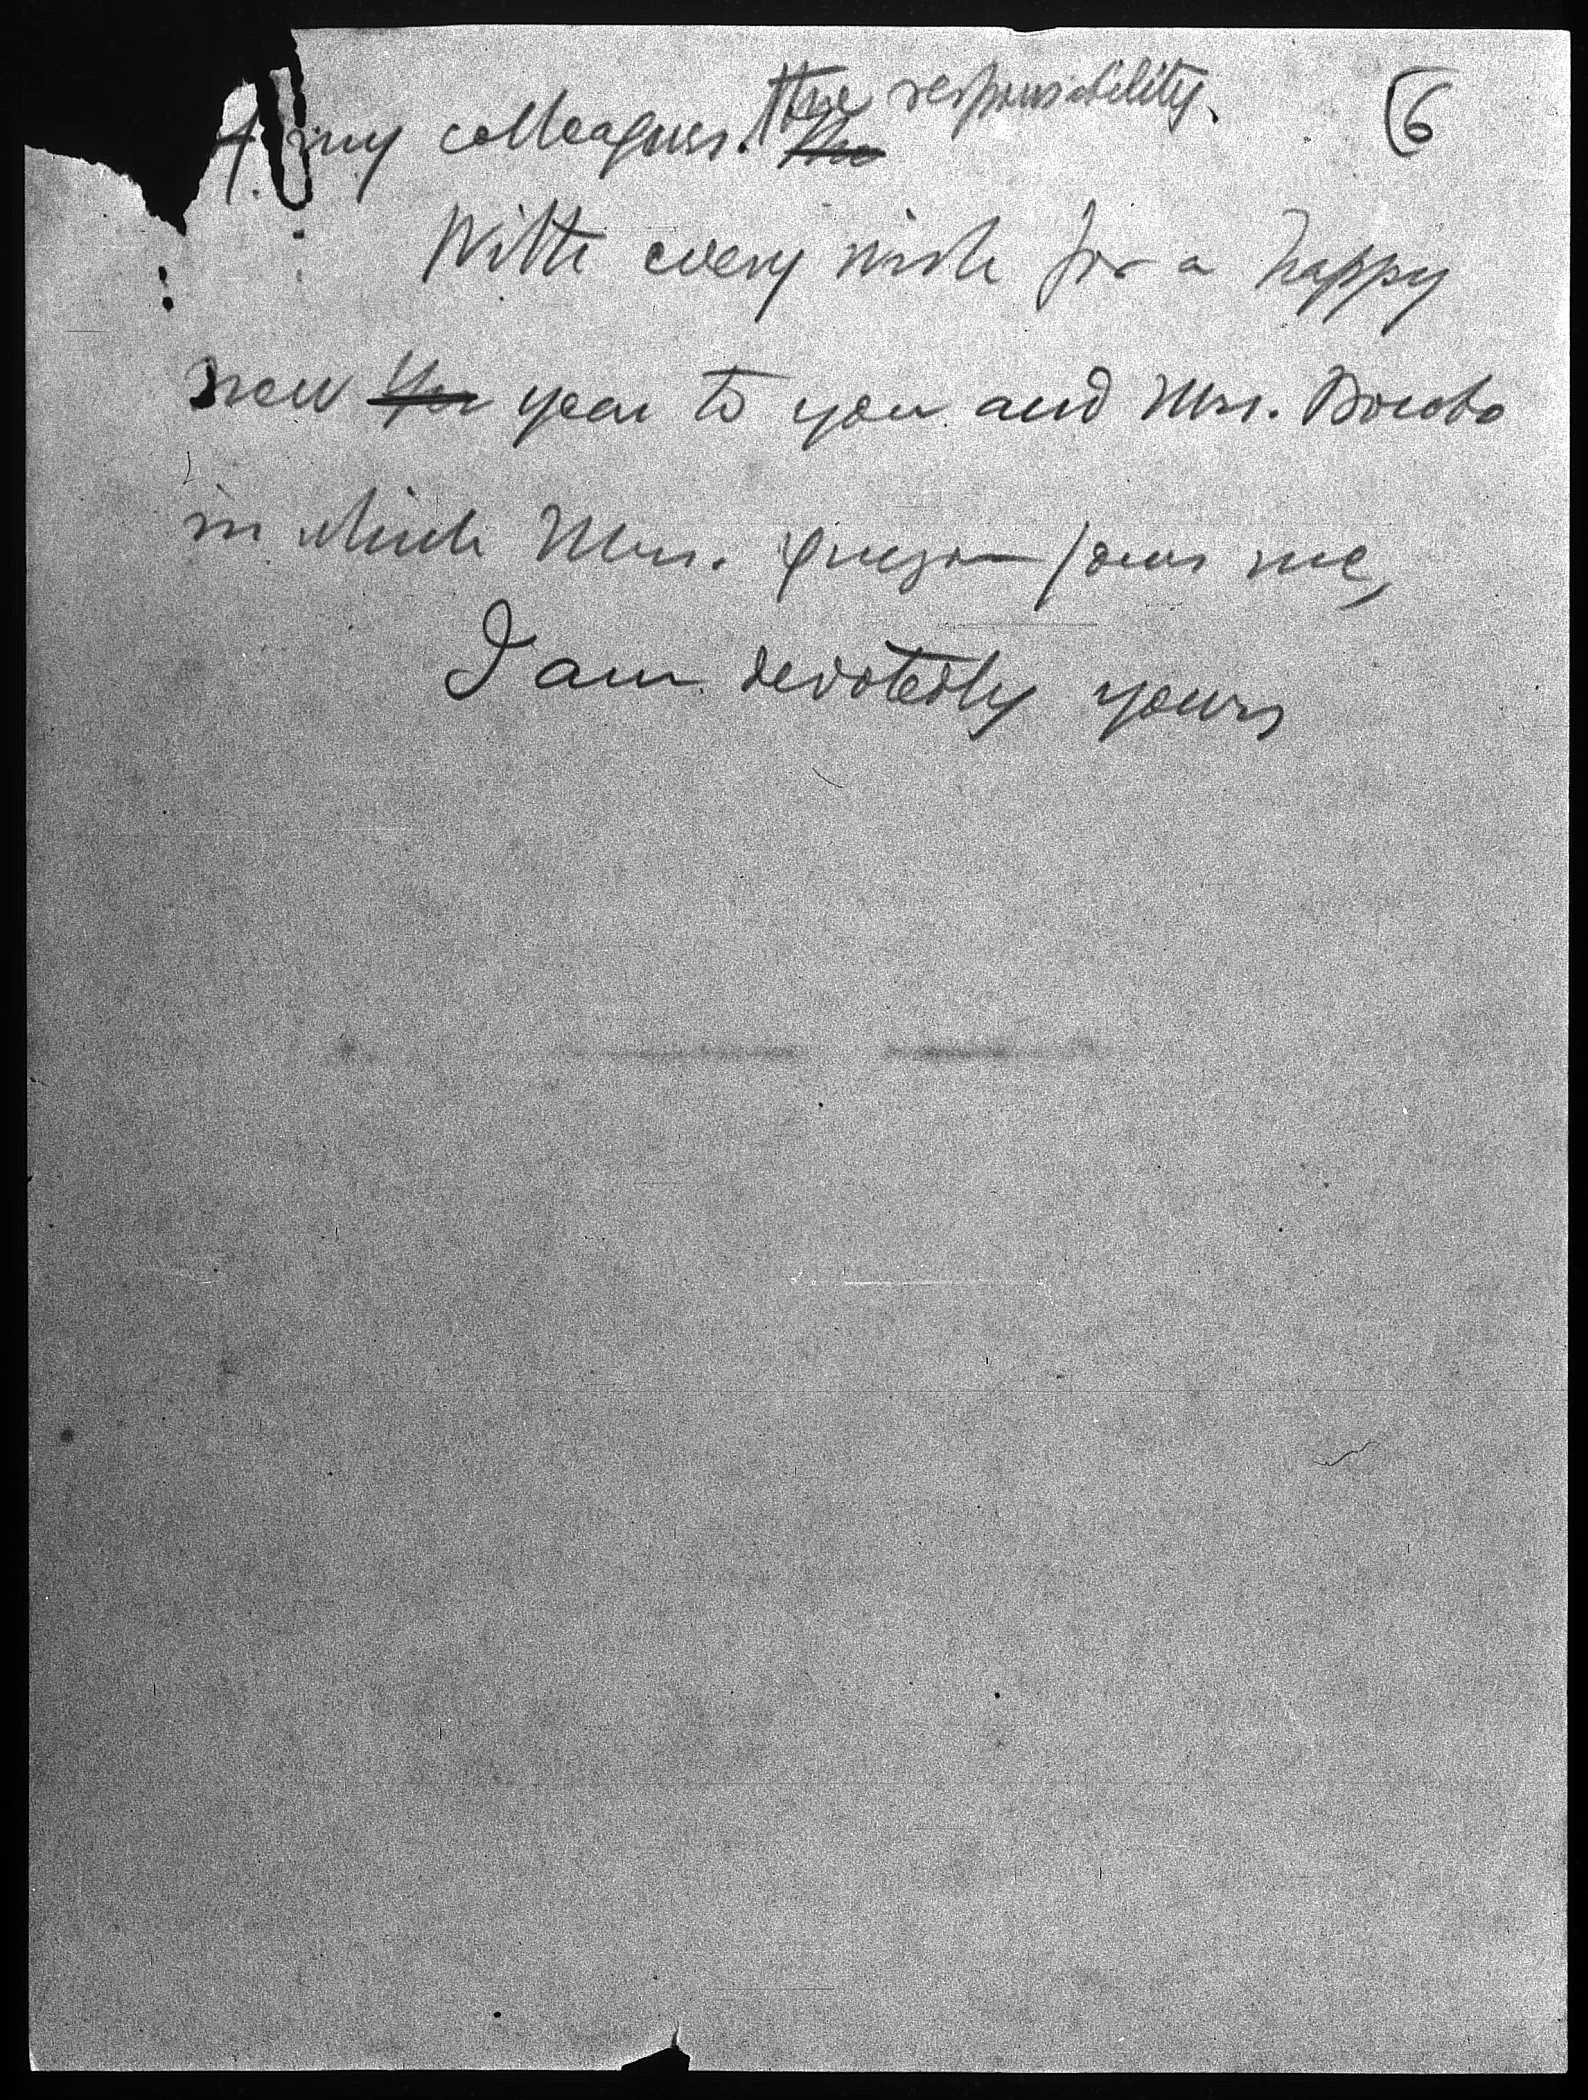 6
my colleagues. the responsibility.
With every wish for a happy
new year to you and Mrs. Bocobo
in which Mrs. Quezon joins me,
I am devotedly yours